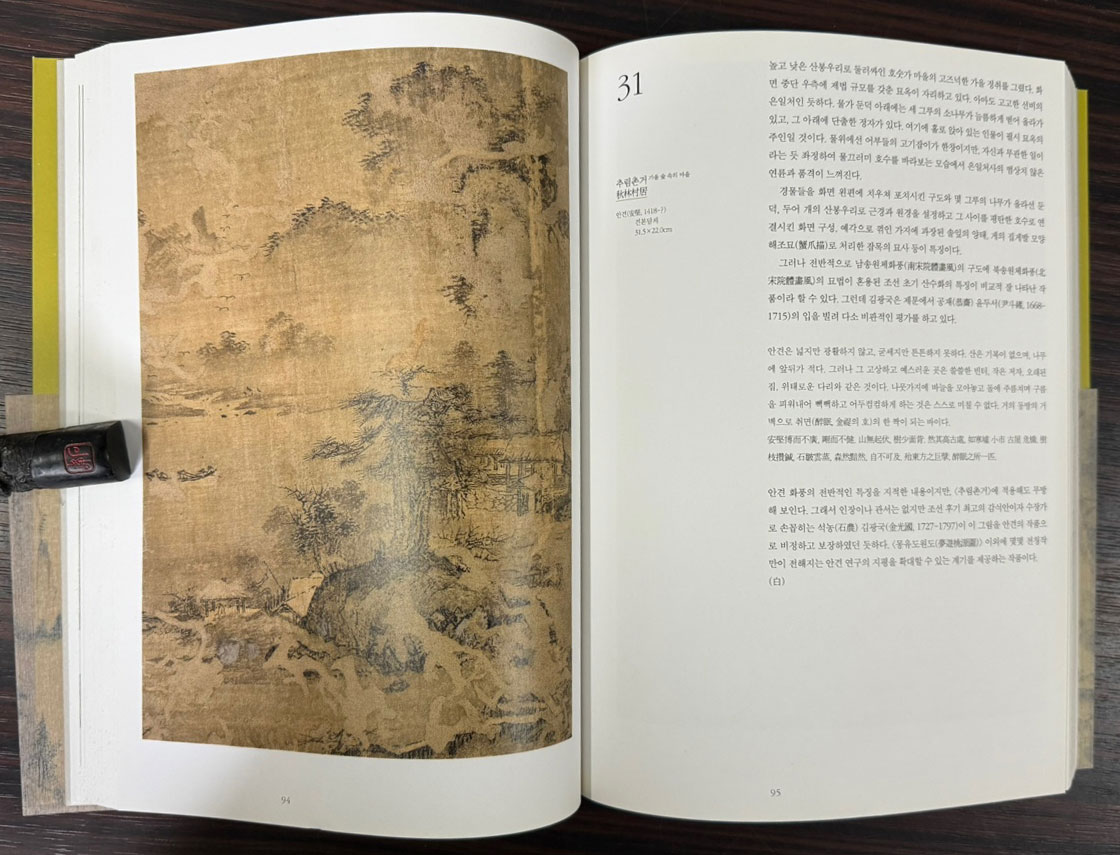 31
추림촌거 가을 숲 속의 마을
秋林村居
안견(安堅, 1418-?)
견본담채
31.5×22.0cm
높고 낮은 산봉우리로 둘러싸인 호숫가 마을의 고즈넉한 가을 정취를 그렸다. 화
면 중단 우측에 제법 규모를 갖춘 묘옥이 자리하고 있다. 아마도 고고한 선비의
은일처인 듯하다. 물가 둔덕 아래에는 세 그루의 소나무가 늠름하게 뻗어 올라가
있고, 그 아래에 단출한 정자가 있다. 여기에 홀로 앉아 있는 인물이 필시 묘옥의
주인일 것이다. 물위에선 어부들의 고기잡이가 한창이지만, 자신과 무관한 일이
라는 듯 좌정하여 물끄러미 호수를 바라보는 모습에서 은일처사의 범상치 않은
연륜과 품격이 느껴진다.
경물들을 화면 왼편에 치우쳐 포치시킨 구도와 몇 그루의 나무가 올라선 둔
덕, 두어 개의 산봉우리로 근경과 원경을 설정하고 그 사이를 평탄한 호수로 연
결시킨 화면 구성, 예각으로 꺾인 가지에 과장된 솔잎의 양태, 게의 집게발 모양
해조묘(蟹爪描)로 처리한 잡목의 묘사 등이 특징이다.
그러나 전반적으로 남송원체화풍(南宋院體畵風)의 구도에 북송원체화풍(北
宋院體畵風)의 묘법이 혼용된 조선 초기 산수화의 특징이 비교적 잘 나타난 작
품이라 할 수 있다. 그런데 김광국은 제문에서 공재(恭齋) 윤두서(尹斗緖, 1668-
1715)의 입을 빌려 다소 비판적인 평가를 하고 있다.
안견은 넓지만 광활하지 않고, 굳세지만 튼튼하지 못하다. 산은 기복이 없으며, 나무
에 앞뒤가 적다. 그러나 그 고상하고 예스러운 곳은 쓸쓸한 빈터, 작은 저자, 오래된
집, 위태로운 다리와 같은 것이다. 나뭇가지에 바늘을 모아놓고 돌에 주름지며 구름
을 피워내어 빽빽하고 어두컴컴하게 하는 것은 스스로 미칠 수 없다. 거의 동방의 거
벽으로 취면(醉眠, 金禔의 호)의 한 짝이 되는 바이다.
安堅博而不廣, 剛而不健. 山無起伏, 樹少面背. 然其高古處, 如寒墟 小市 古屋 危橋, 樹
枝攢鍼, 石皺雲蒸, 森然黯然, 自不可及. 殆東方之巨擘, 醉眠之所一匹.
안견 화풍의 전반적인 특징을 지적한 내용이지만, 〈추림촌거〉에 적용해도 무방
해 보인다. 그래서 인장이나 관서는 없지만 조선 후기 최고의 감식안이자 수장가
로 손꼽히는 석농(石農) 김광국(金光國, 1727-1797)이 이 그림을 안견의 작품으
로 비정하고 보장하였던 듯하다. 〈몽유도원도(夢遊桃源圖)〉 이외에 몇몇 전칭작
만이 전해지는 안견 연구의 지평을 확대할 수 있는 계기를 제공하는 작품이다.
(白)
94
95